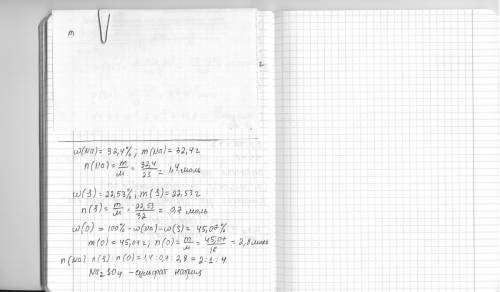 m
2
w(Na)= 32,4%; m(Na)= 32,4г
n(Na)= m/M = 32,4/23 = 1,4 моль
w(S)= 22,53%; m(S)= 22,53г
n(S)= m/M = 22,53/32 = 0,7 моль
w(O) = 100% -w(Na)-w(S)= 45,07%
m(O)= 45,07г; n(O)= m/M = 45,07/16 = 2,8 моль
n(Na): n(S): n(O) = 1,4 : 0,7 : 2,8 = 2:1:4
Na2SO4 -сульфат натрия